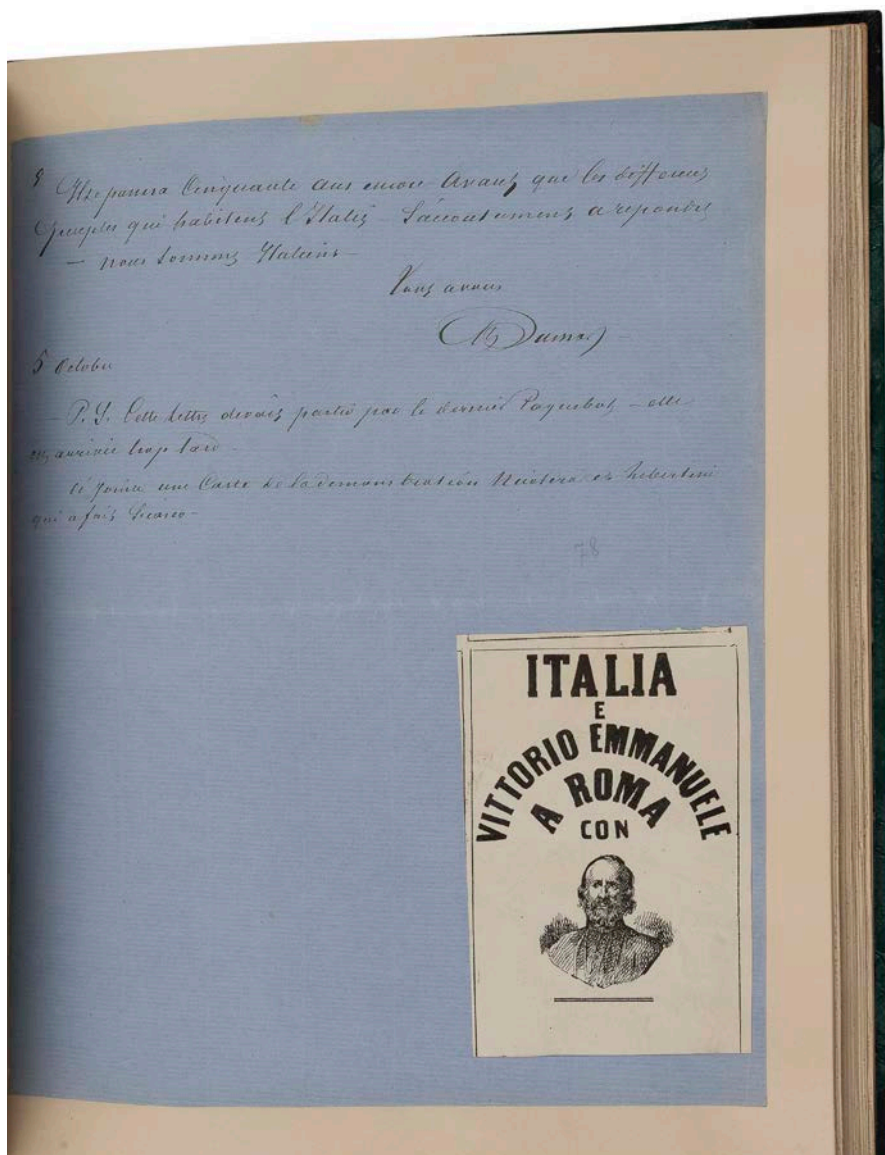 Il se passera Cinquante ans encore Avant que les differents
Peuples qui habitent l'Italie – S'accoutument a repondre
— nous sommes Italiens —
Tout a vous
Al Dumas
5 Octobre
— P.S. Cette lettre devait partir par le dernier Paquebot – elle
est arrivée trop tard –
ci joint une Carte de la demonstration et
qui a fait –
78
ITALIA
E
VITTORIO EMMANUELE
A ROMA
CON